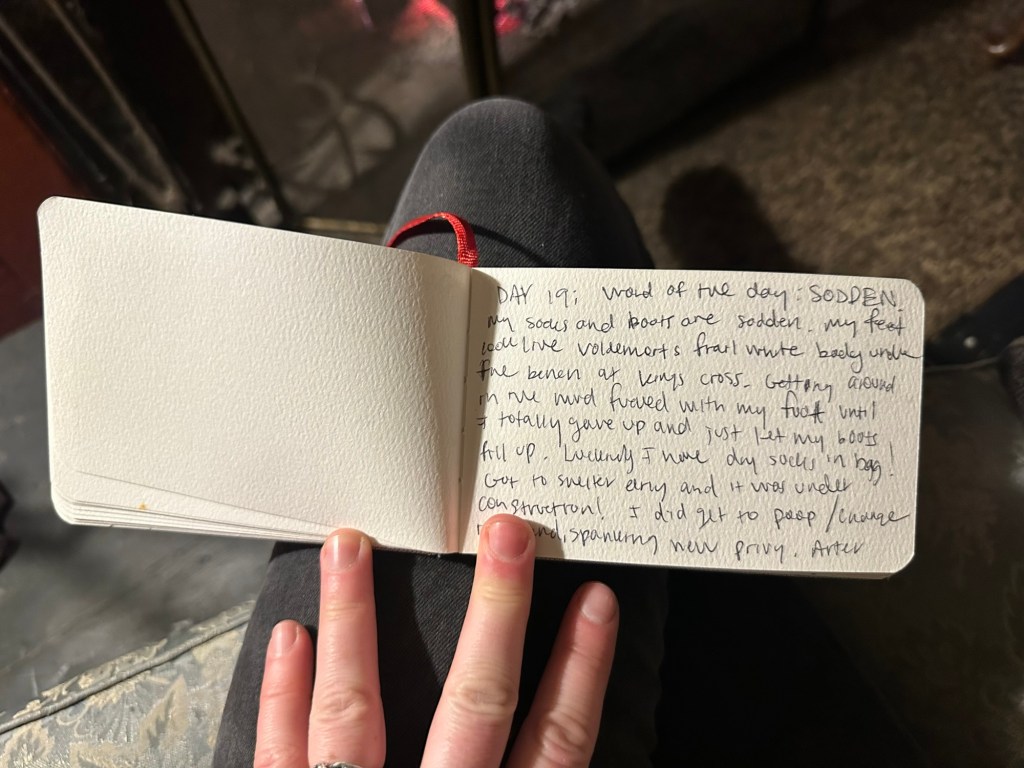 DAY 19; Word of the day: SODDEN.
my socks and boots are sodden. my feet
look like voldemort's frail white body under
the bench at kings cross. Getting around
in the mud fucked with my foot until
I totally gave up and just let my boots
fill up. Luckily I have dry socks in bag!
Got to shelter early and it was under
construction! I did get to poop/change
spanking new privy. After